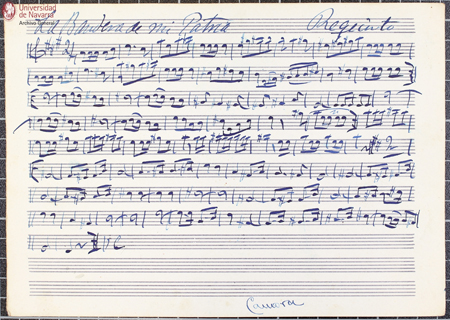 Universidad
de Navarra
Archivo General
La Bandera de mi Patria Requinto
D.C